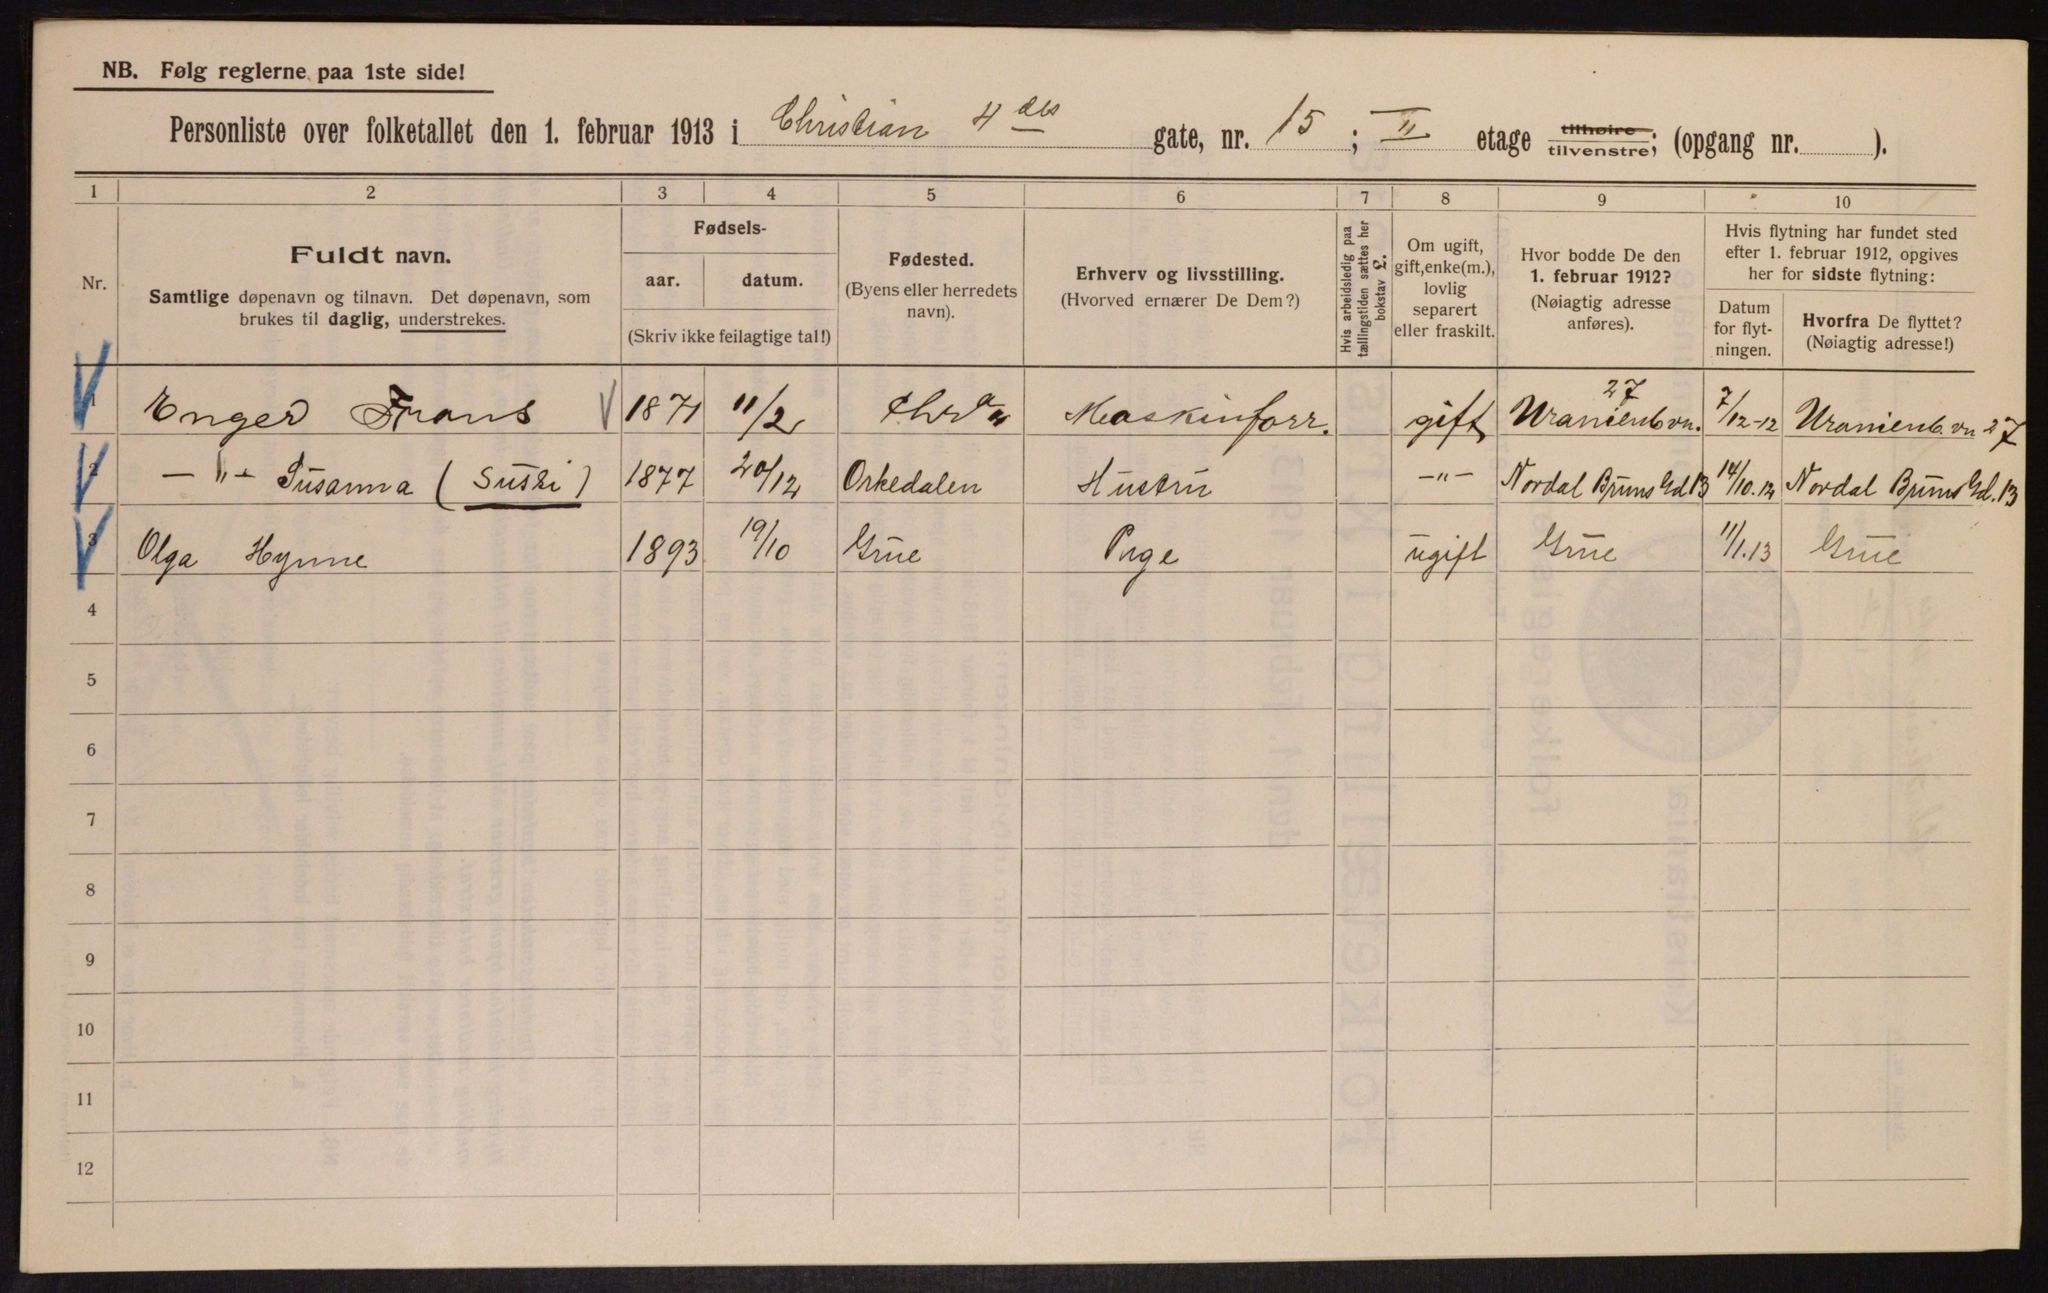 NB. Følg reglerne paa 1ste side!
Personliste over folketallet den 1. februar 1913 i Christian 4 des gate, nr. 15 ; II etage tilhøire tilvenstre; (opgang nr. ).
1 2 3 4 5 6 7 8 9 10
Nr.
Fuldt navn.
Samtlige døpenavn og tilnavn. Det døpenavn, som
brukes til daglig, understrekes.
Fødsels-
aar. datum.
(Skriv ikke feilagtige tal!)
Fødested.
(Byens eller herredets
navn).
Erhverv og livsstilling.
(Hvorved ernærer De Dem?)
Hvis arbeidsledig paa
tællingstiden sættes her
bokstav L.
Om ugift,
gift, enke(m.),
lovlig
separert
eller fraskilt.
Hvor bodde De den
1. februar 1912?
(Nøiagtig adresse
anføres).
Hvis flytning har fundet sted
efter 1. februar 1912, opgives
her for sidste flytning:
Datum
for flyt-
ningen.
Hvorfra De flyttet?
(Nøiagtig adresse!)
1 Enger Frans 1871 11/2 Chr a Maskinforr. gift Uranienb.vn. 27 7/12-12 Uranienb. vn 27
2 —"— Susanna (Sussi) 1877 20/12 Orkedalen Hustru —"— Nordal Bruns Gd 13 14/10.12 Nordal Bruns Gd. 13
3 Olga Hynne 1893 19/10 Grue Pige ugift Grue 11/1.13 Grue
4
5
6
7
8
9
10
11
12